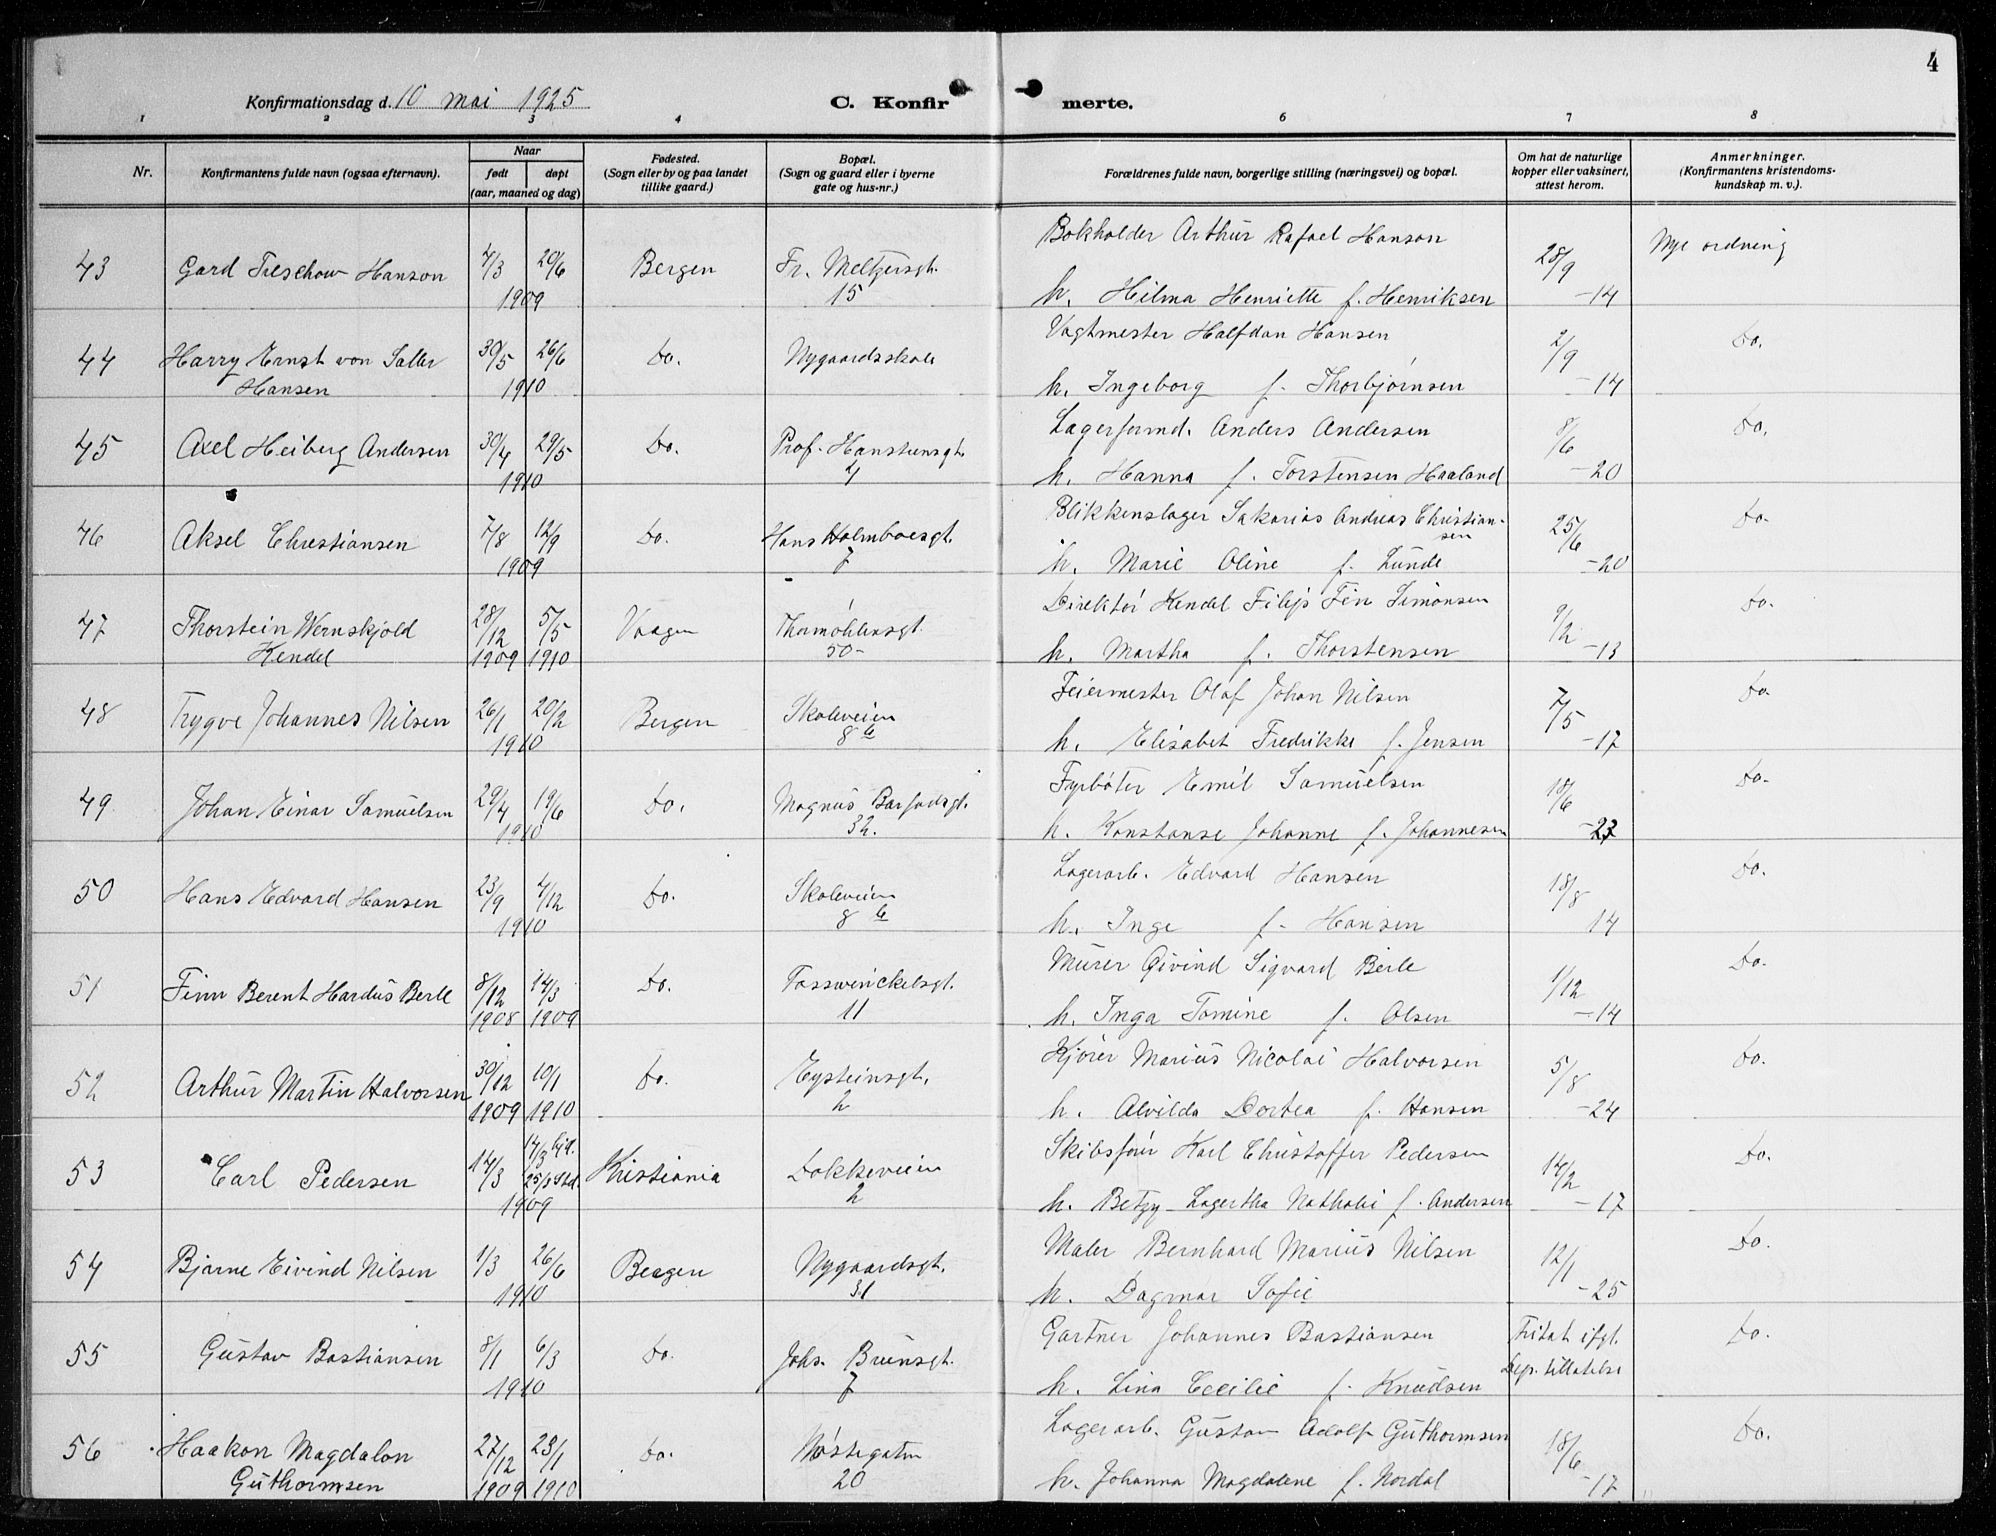 4
Konfirmationsdag d. 10 mai 1925 C. Konfirmerte.
1 2 3 4 6 7 8
Nr. Konfirmantens fulde navn (ogsaa efternavn). Naar født døpt (aar, maaned og dag) Fødested. (Sogn eller by og paa landet tillike gaard.) Bopæl. (Sogn og gaard eller i byerne gate og hus-nr.) Forældrenes fulde navn, borgerlige stilling (næringsvei) og bopæl. Om hat de naturlige kopper eller vaksinert, attest herom. Anmerkninger. (Konfirmantens kristendomskundskap m. v.).
Bokholder Arthur Rafael Hanson
43 Gard Treschow Hanson 4/3 20/6 Bergen Fr. Meltzersgt. 28/9 Nye ordning
1909 15 h. Hilma Henriette f. Henriksen -14
Vagtmester Halfdan Hansen
44 Harry Ernst von Saller 30/5 26/6 Do. Nygaardsskole 2/9 Do.
Hansen 1910 h. Ingeborg f. Thorbjørnsen -14
Lagerformd. Anders Andersen
45 Axel Heiberg Andersen 30/4 29/5 Do. Prof. Hansteensgt. 8/6 Do.
1910 4 h. Hanna f. Torstensen Haaland -20
Blikkenslager Sakarias Andreas Christian-
sen
46 Aksel Christiansen 7/8 12/9 Do. Hans Holmboesgt. 25/6 Do.
1909 7 h. Marie Oline f. Lunde -20
Direktør Kendel Filip Fin Simonsen
47 Thorstein Wernskjold 28/12 5/5 Vaagen Thormøhlensgt. 9/2 Do.
Kendel 1909 1910 50- h. Martha f. Thorstensen -13
Feiermester Olaf Johan Nilsen
48 Trygve Johannes Nilsen 26/1 20/2 Bergen Skoleveien 7/5 Do.
1910 8 b h. Elisabet Fredrikke f. Jensen -17
Fyrbøter Emil Samuelsen
49 Johan Einar Samuelsen 29/4 19/6 Do. Magnus Barfodsgt. 18/6 Do.
1910 32. h. Konstanse Johanne f. Johannesen -23
Lagerarb. Edvard Hansen
50 Hans Edvard Hansen 23/9 4/12 Do. Skoleveien 18/8 Do.
1910 8 b h. Inge f. Hansen 14
Murer Eivind Sigvard Berle
51 Finn Berent Hardus Berle 8/12 14/3 Do. Fosswinckelsgt. 1/12 Do.
1908 1909 11 h. Inga Tomine f. Olsen -14
Kjører Marius Nicolai Halvorsen
52 Arthur Martin Halvorsen 30/12 10/1 Do. Eysteinsgt. 5/8 Do.
1909 1910 2 h. Alvilda Dortea f. Hansen -24
Skibsfører Karl Christoffer Pedersen
53 Carl Pedersen 14/3 14/3 hjd. 25/3 Kristiania Dokkeveien 14/2 Do.
1909 2 h. Betzy Lagertha Nathalie f. Andersen -17
Maler Bernhard Marius Nilsen
54 Bjarne Eivind Nilsen 1/3 26/6 Bergen Nygaardsgt. 12/1 Do.
1910 31 h. Dagmar Sofie -25
Gartner Johannes Bastiansen Fritat ifgl.
55 Gustav Bastiansen 8/1 6/3 Do. Johs. Brunsgt. Dep. tillatelse Do.
1910 7 h. Lina Cecilie f. Knudsen
Lagerarb. Gustav Adolf Guthormsen
56 Haakon Magdalon 27/12 23/1 Do. Nøstegaten 18/6 Do.
Guthormsen 1909 1910 20 h. Johanna Magdalene f. Nordal -17